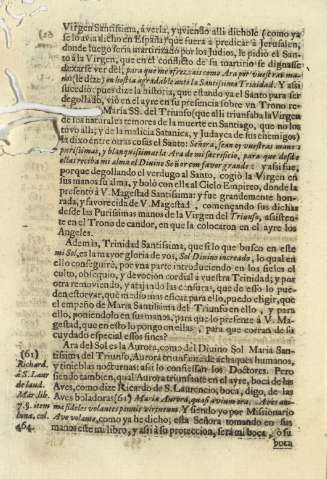 Virgen Santissima, à verla, y viviendo alli dichole (como ya
se lo avia dicho en España) que fuera à predicar à Jerusalen,
donde luego seria martirizado por los Judios, le pidiò el San-
to à la Virgen, que en el conflicto de su martirio se dignasse
dexarse ver dèl, para que me ofrezcais como Ara por vuestras ma-
nos (le dize) en hostia agradable ante la Santissima Trinidad. Y assi
sucediò; pues dize la historia, que estando ya el Santo para ser
degollado, viò en el ayre en su presencia sobre vn Trono re
Maria SS. del Triunfo (que alli triunfaba la Virgen
de los naturales temores de la muerte en Santiago, que no los
tuvo alli; y de la malicia Satanica, y Judayca de sus enemigos)
la dixo entre otras cosas el Santo: Señora, sean oy vuestras manos
purissimas, y blanquissimas la Ara de mi sacrificio, para que desde
ellas reciba mi alma el Divino Señor con favor grande: y assi fue,
porque degollando el verdugo al Santo, cogiò la Virgen en
sus manos su alma, y bolò con ella al Cielo Empireo, donde la
presentò à V. Magestad Santissima: y fue grandemente hon-
rada, y favorecida de V. Magestad, comenzando sus dichas
desde las Purissimas manos de la Virgen del Triunfo, asisten-
te en el Trono de candor, en que la colocaron en el ayre los
Angeles.
Ademàs, Trinidad Santissima, que si lo que busco en este
mi Sol, es la mayor gloria de vos, Sol Divino increado, lo qual en
ello conseguirè, por vna parte introduciendo en los fieles el
culto, obsequio, y devocion cordial à vuestra Trinidad; y por
otra removiendo, y atajando las censuras, que de esso lo pue-
den estorvar, què medio mas eficaz para ello, puedo eligir, que
el empeño de Maria Santissima del Triunfo en ello, y para
ello, poniendolo en sus manos, para que lo presente à V. Ma-
gestad, que en esto lo pongo en ellas, para que corran de su
cuydado especial essos fines?
Ara del Sol es la Aurora, como del Divino Sol Maria San-
tissima del Triunfo, Aurora triunfante de achaques humanos,
y tinieblas nocturnas: assi lo confiessan los Doctores. Pero
siendo tambien, qual Aurora triunfante en el ayre, boca de las
Aves, como dize Ricardo de S. Laurencio; boca, digo, de las
Aves boladoras (61) Maria Aurora, quasi avium ora. Aves ani-
ma fideles volantes pennis virtutum. Y siendo yo por Missionario
Ave volante, como ya he dicho; esta Señora tomando en sus
manos este mi libro, y assi à su proteccion, serà mi boca, ò su
boca
(61)
Richard.
à S. Laur
de laud.
Mar. lib.
7. §. item
luna, col.
464.